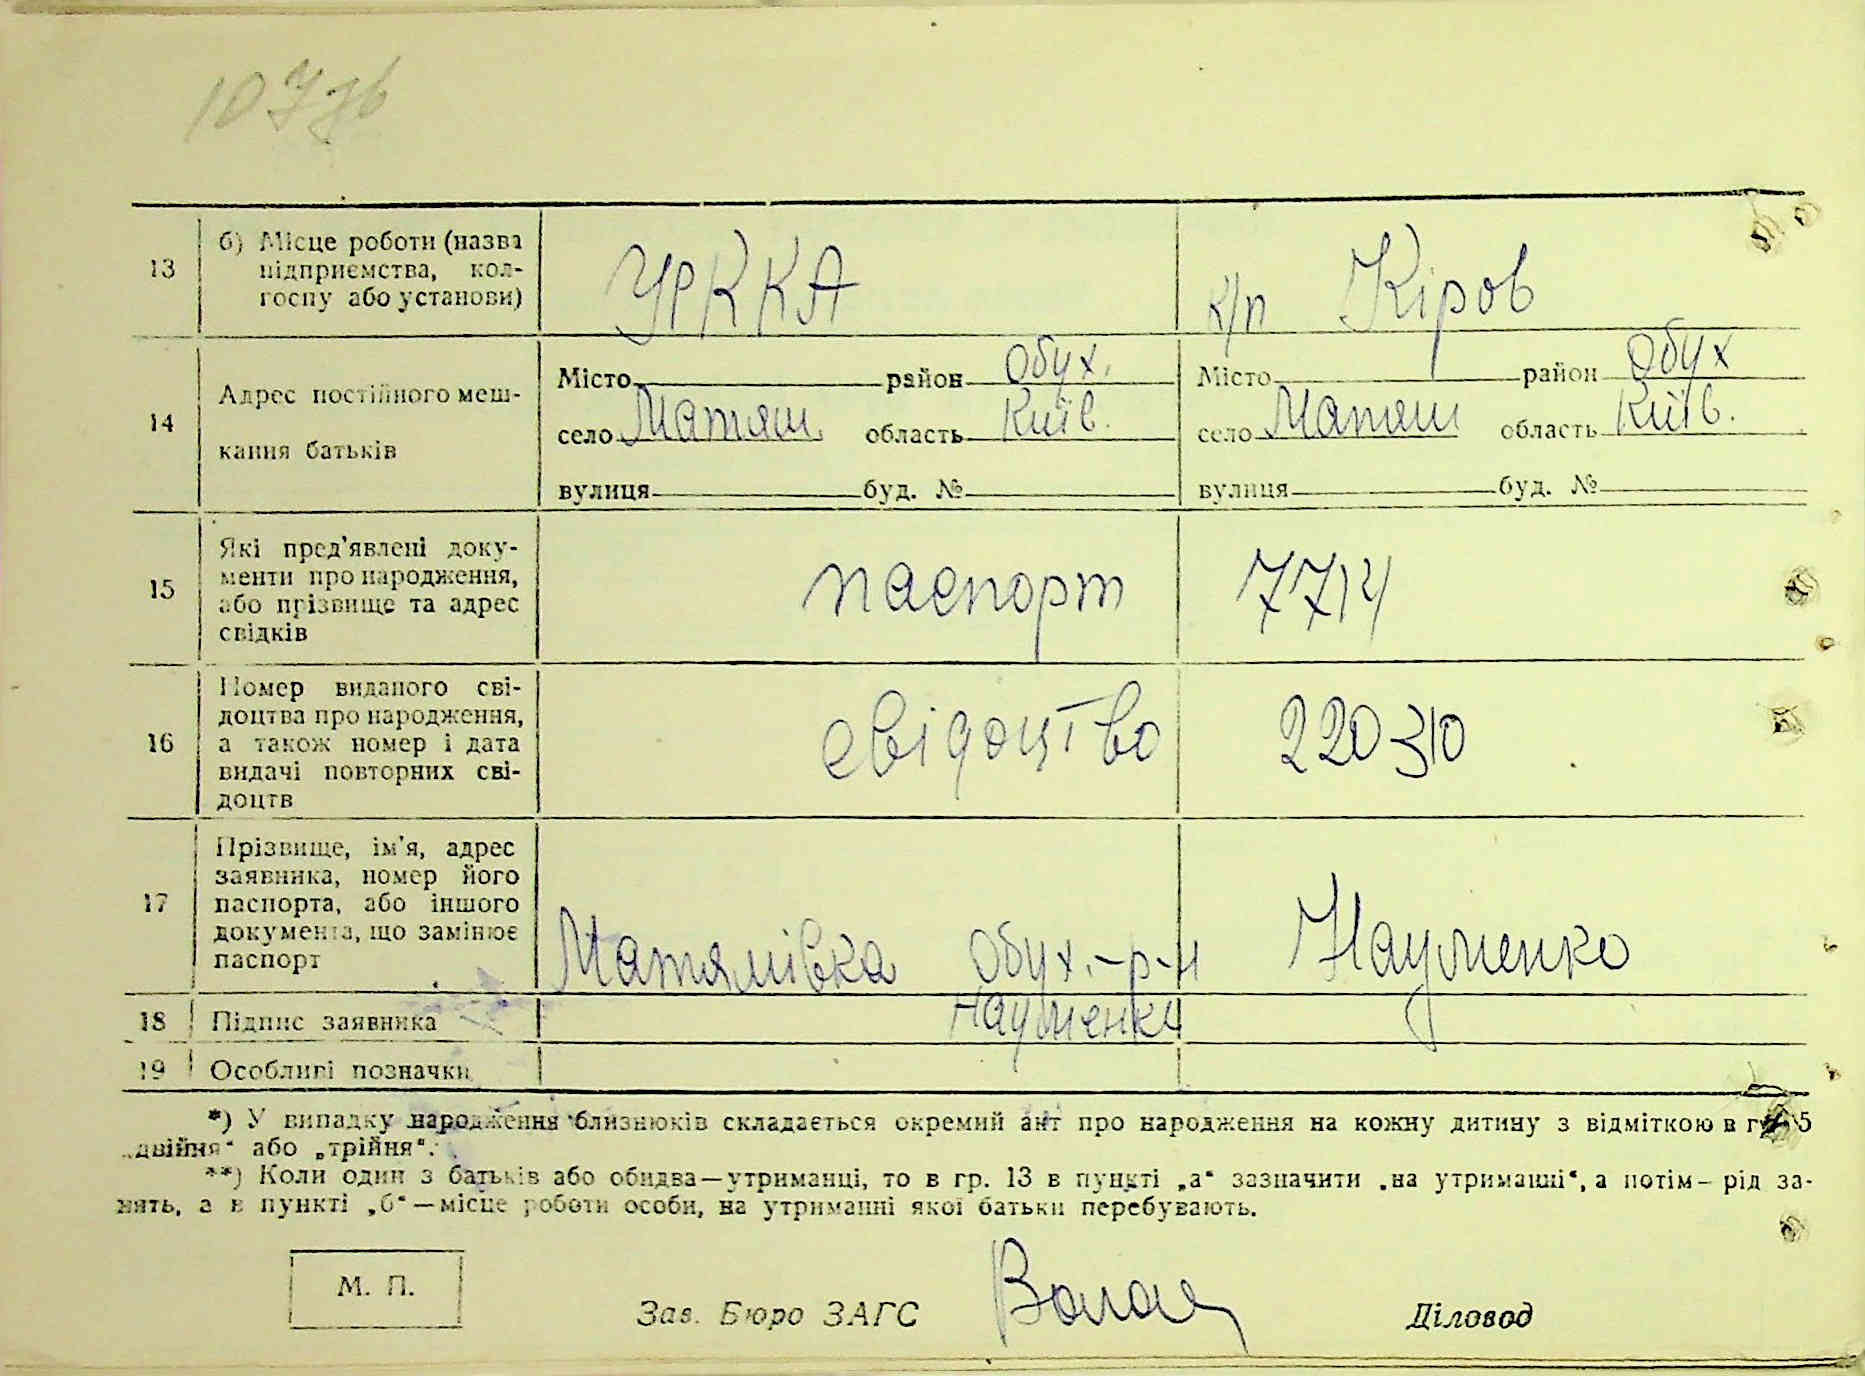 13
б) Місце роботи (назва
підприємства, кол-
госпу або установи)
УРККА
к/п Кіров
14
Адрес постійного меш-
кання батьків
Місто район Обух.
село Матяш. область Київ.
вулиця буд. №
Місто район Обух
село Матяш область Київ.
вулиця буд. №
15
Які пред'явлені доку-
менти про народження,
або прізвище та адрес
свідків
паспорт 7714
16
Номер виданого сві-
доцтва про народження,
а також номер і дата
видачі повторних сві-
доцтв
свідоцтво 220310
17
Прізвище, ім'я, адрес
заявника, номер його
паспорта, або іншого
документа, що замінює
паспорт
Матяшівка Обух.-р-н Науменко
18 Підпис заявника Науменко
19 Особливі позначки
*) У випадку народження близнюків складається окремий акт про народження на кожну дитину з відміткою в гр. 5
„двійня“ або „трійня“.
**) Коли один з батьків або обидва—утриманці, то в гр. 13 в пункті „а“ зазначити „на утриманні“, а потім— рід за-
нять, а в пункті „б“—місце роботи особи, на утриманні якої батьки перебувають.
М. П.
Зав. Бюро ЗАГС
Діловод